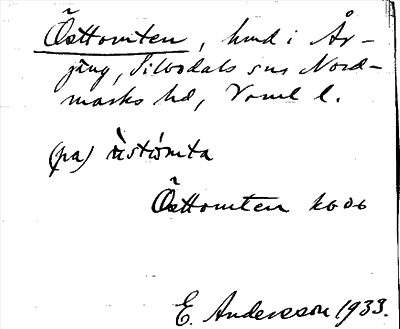 Östtomten, hmd i År-
jäng, Silbodals sns Nord-
marks hd, Vrml l.
(pa) ùstòmta
Östtomten k606
E. Andersson 1933.